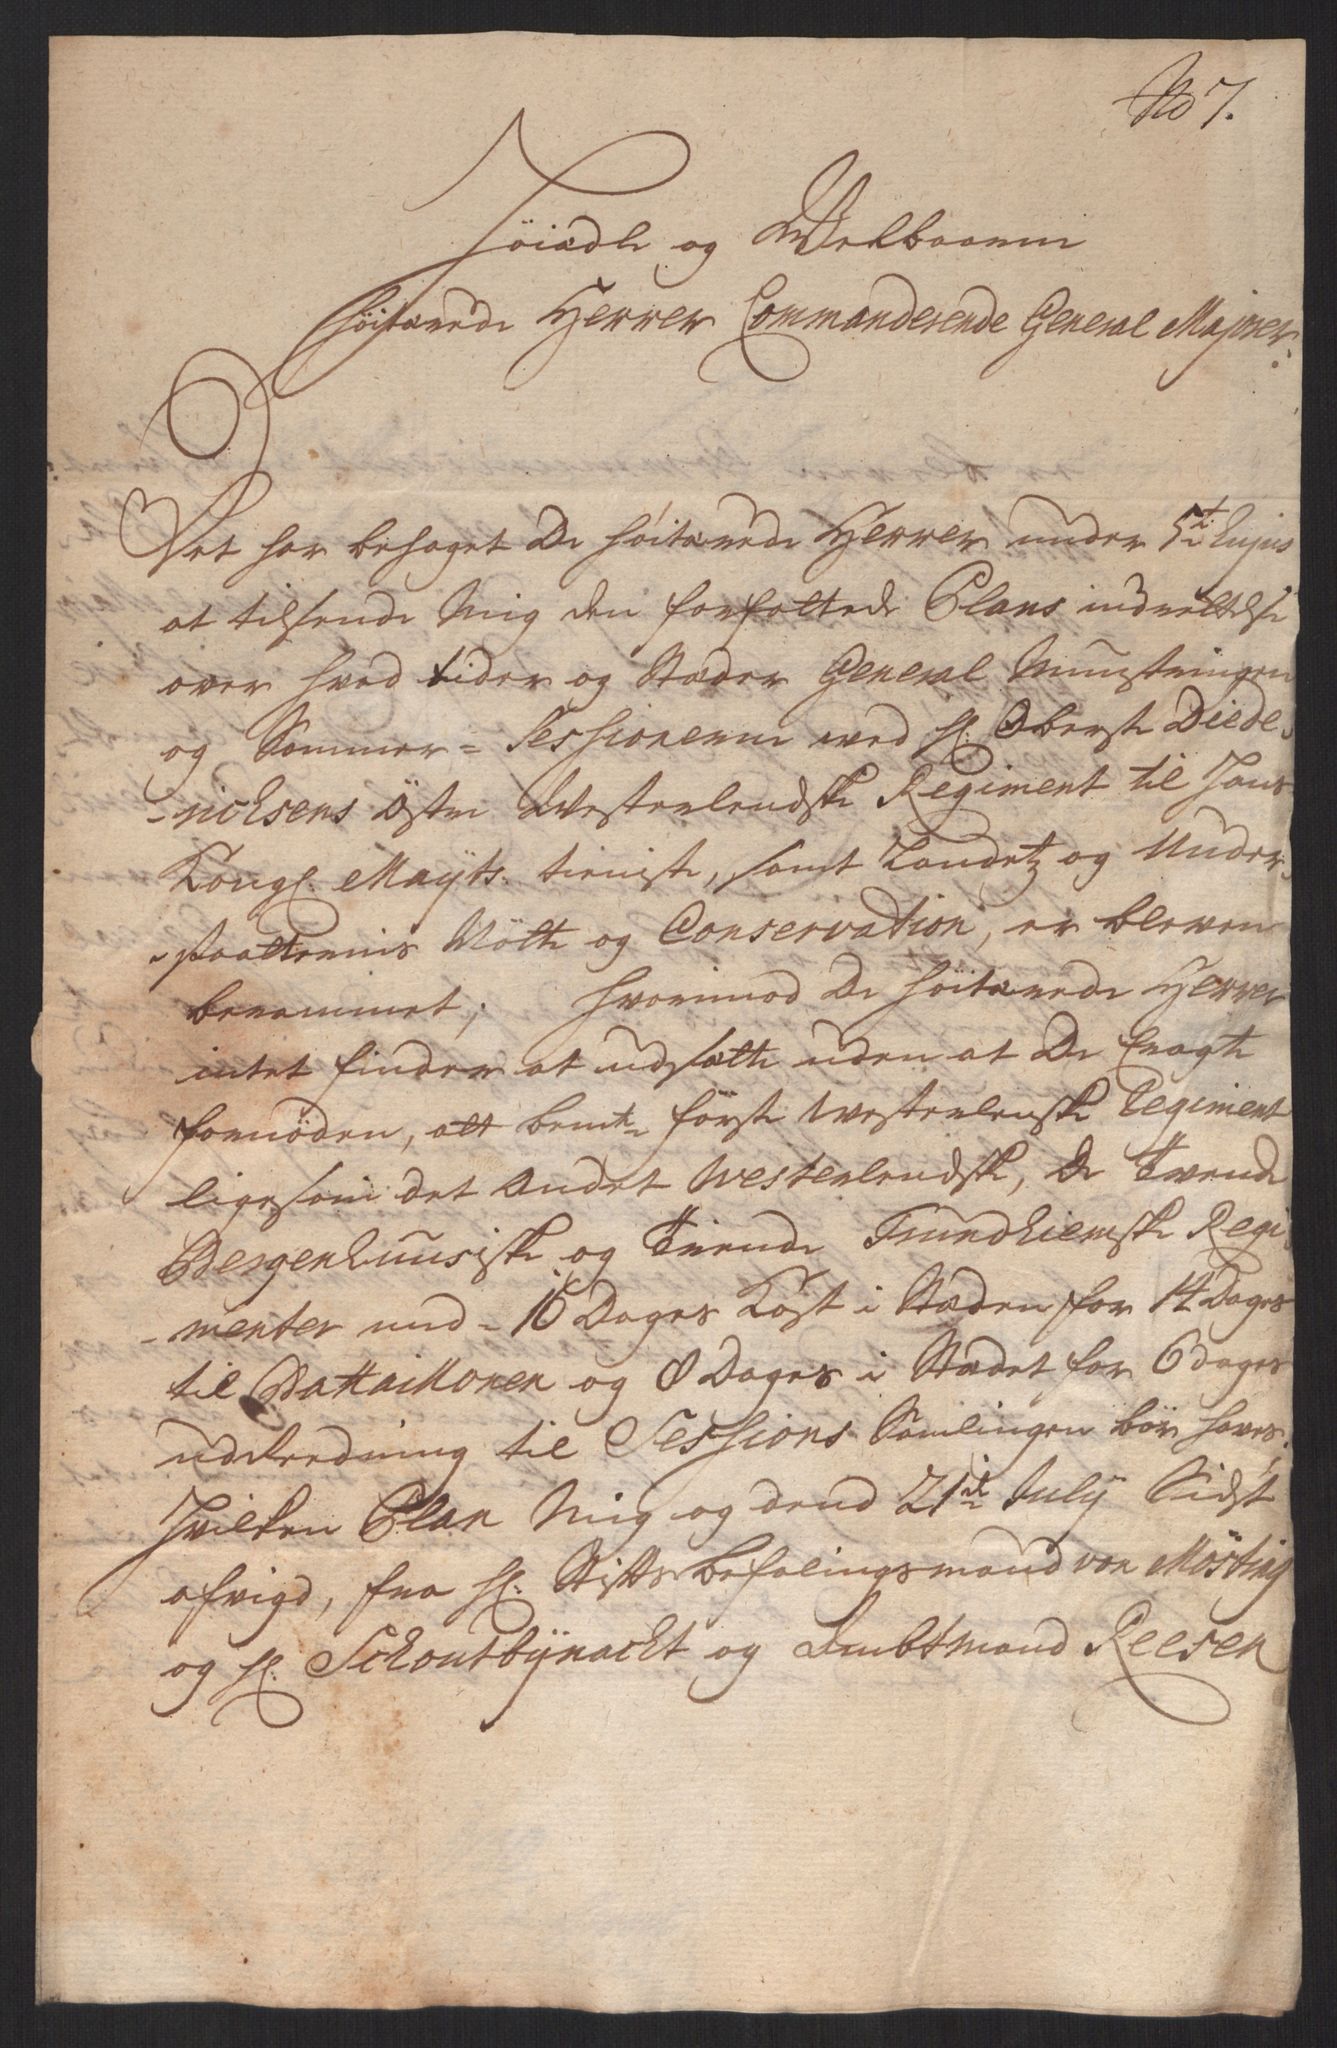 No 7.
Höiædle og Welbaarne
Höitærede Herrer Commanderende General Majorer.
Det har behaget De höitærede Herrer under 5te hujus
at tilsende Mig den forfattede Plans indrettelse
over hvad tider og Stæder General Munstringen
og Sommer = Sessionerne ved H: Oberste Diede-
-richsens Östre Westerlendske Regiment til Hans
Kongl. Mayts. tieniste, samt Landetz og Under-
-saatternis Nötte og Conservation, er bleven
berammet; hvorimod De höitærede Herrer
intet finder at udsætte uden at De eragte
fornöden, att bemte förste Westerlenske Regiment
ligesom det Andet Westerlendske, De Tvende
Bergenhuusiske og Tvende Trundhiemske Regi-
-menter med - 16 Dages Kost i Stæden for 14 Dages
til Battaillonen og 8 Dages i Stædet for 6 dages
udredning til Sessions Samlingen bör haves;
Hvilken Plan Mig og dend 21de July Sidst
afvigd, fra H: Stiftsbefalingsmand von Mösting
og H: Schoutbynacht og Ambtmand Reesen